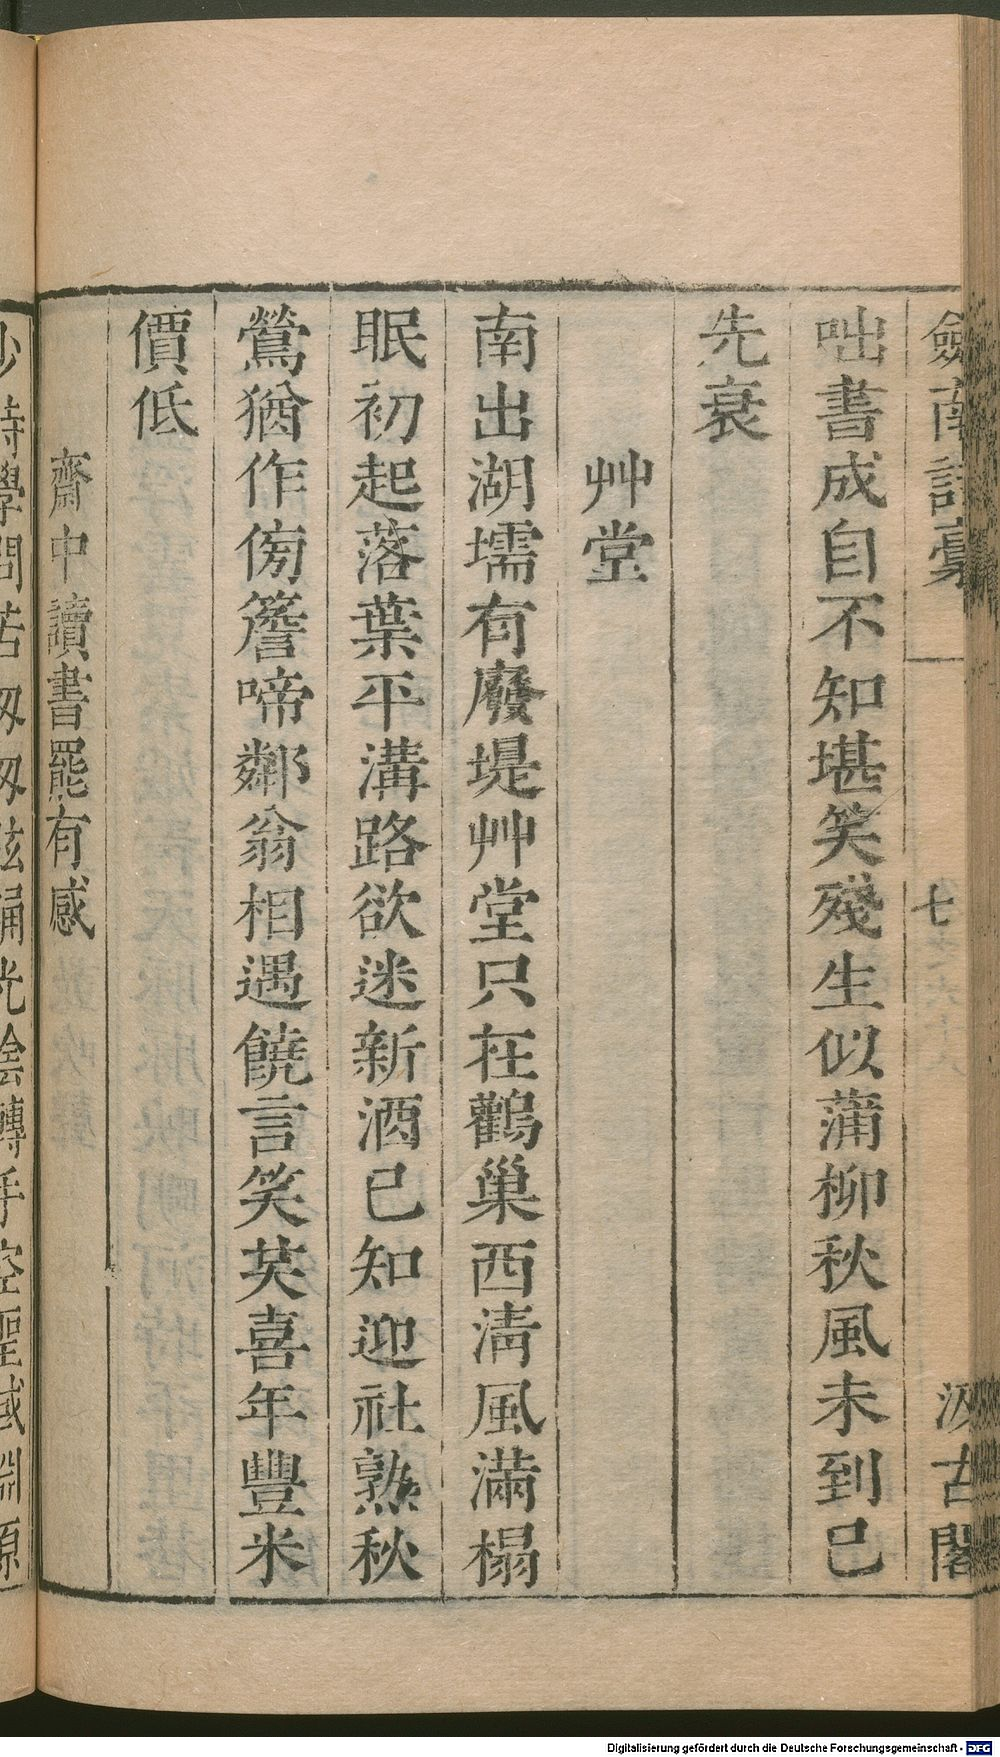 劔南詩稾
七
汲古閣
咄書成自不知堪笑殘生似蒲柳秋風未到已
先衰
艸堂
南出湖堧有廢堤艸堂只在鸛巢西淸風滿榻
眠初起落葉平溝路欲迷新酒已知迎社熟秋
鶯猶作傍簷啼鄰翁相遇饒言笑共喜年豐米
價低
齋中讀書罷有感
少時學問苦
誦光陰轉手空聖域淵源
Digitalisierung gefördert durch die Deutsche Forschungsgemeinschaft - DFG